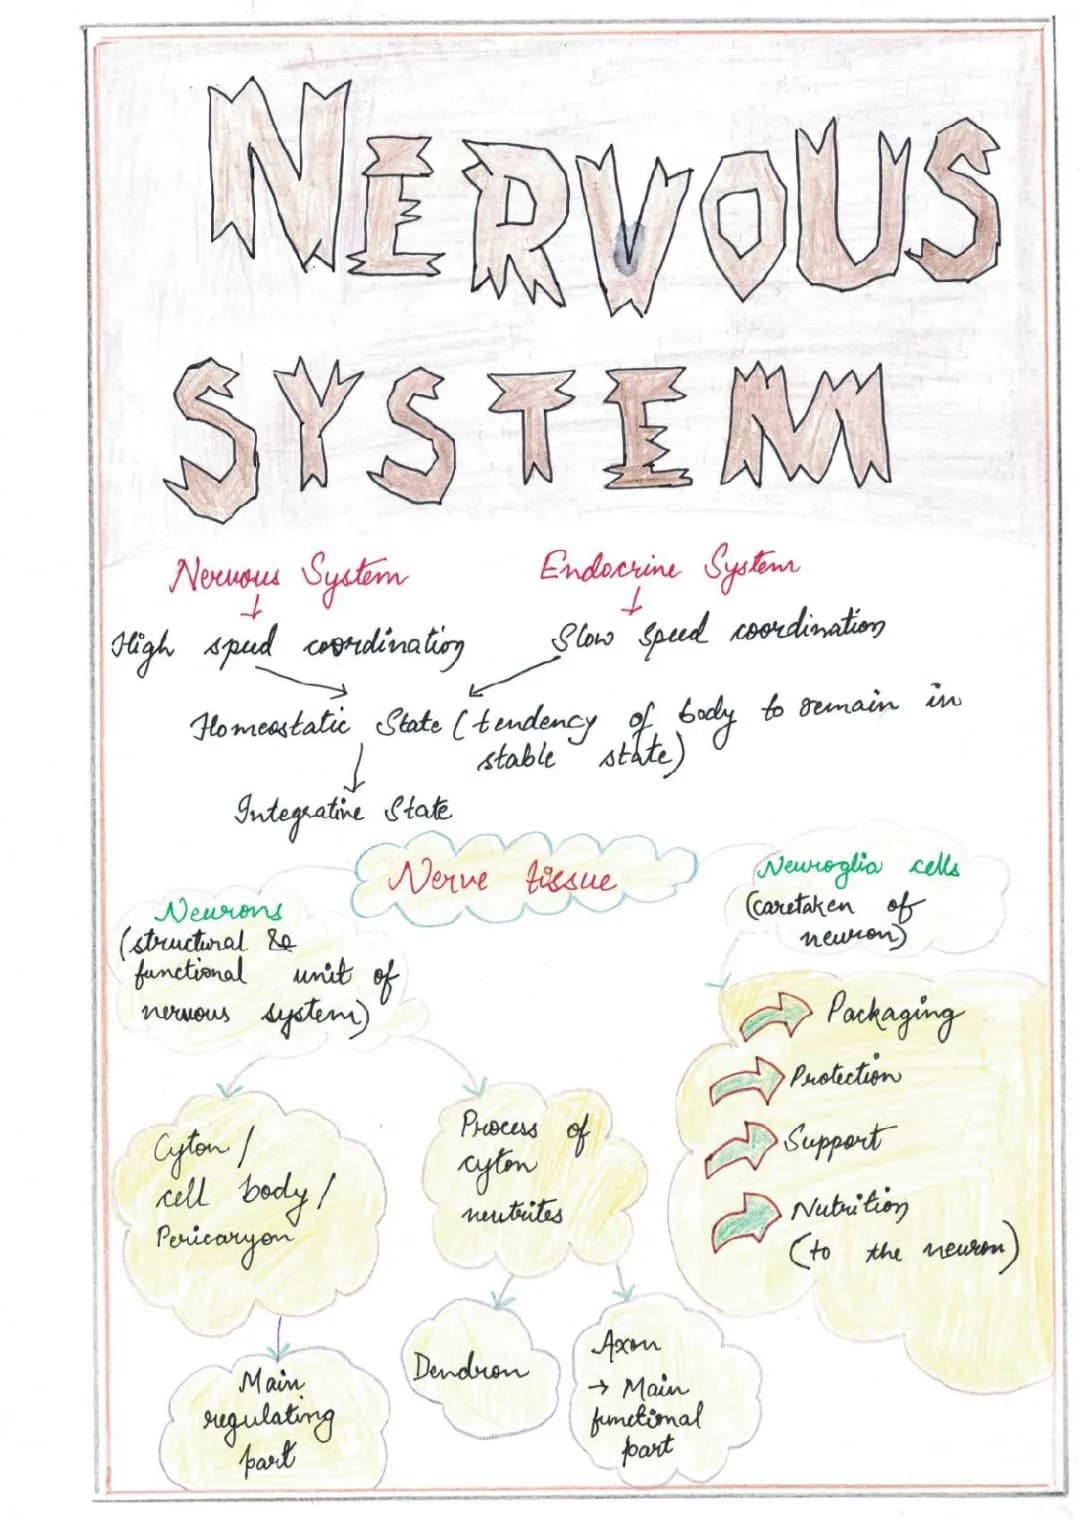 NERVOUS
SYSTEM
Nervous System
Endocrine System
High speed coordination
Slow speed coordination
Homeostatic State (tendency of body to remain in
stable state)
Integrative State
Nerve tissue
Neurons
(structural &
functional unit of
nervous system)
Neuroglia cells
(caretaken of
neuron)
Packaging
Protection
Support
Nutrition
(to the neuron)
Cyton /
cell body /
Pericaryon
Process of
cyton
neutrites
Main
regulating
part
Dendron
Axon
→ Main
functional
part